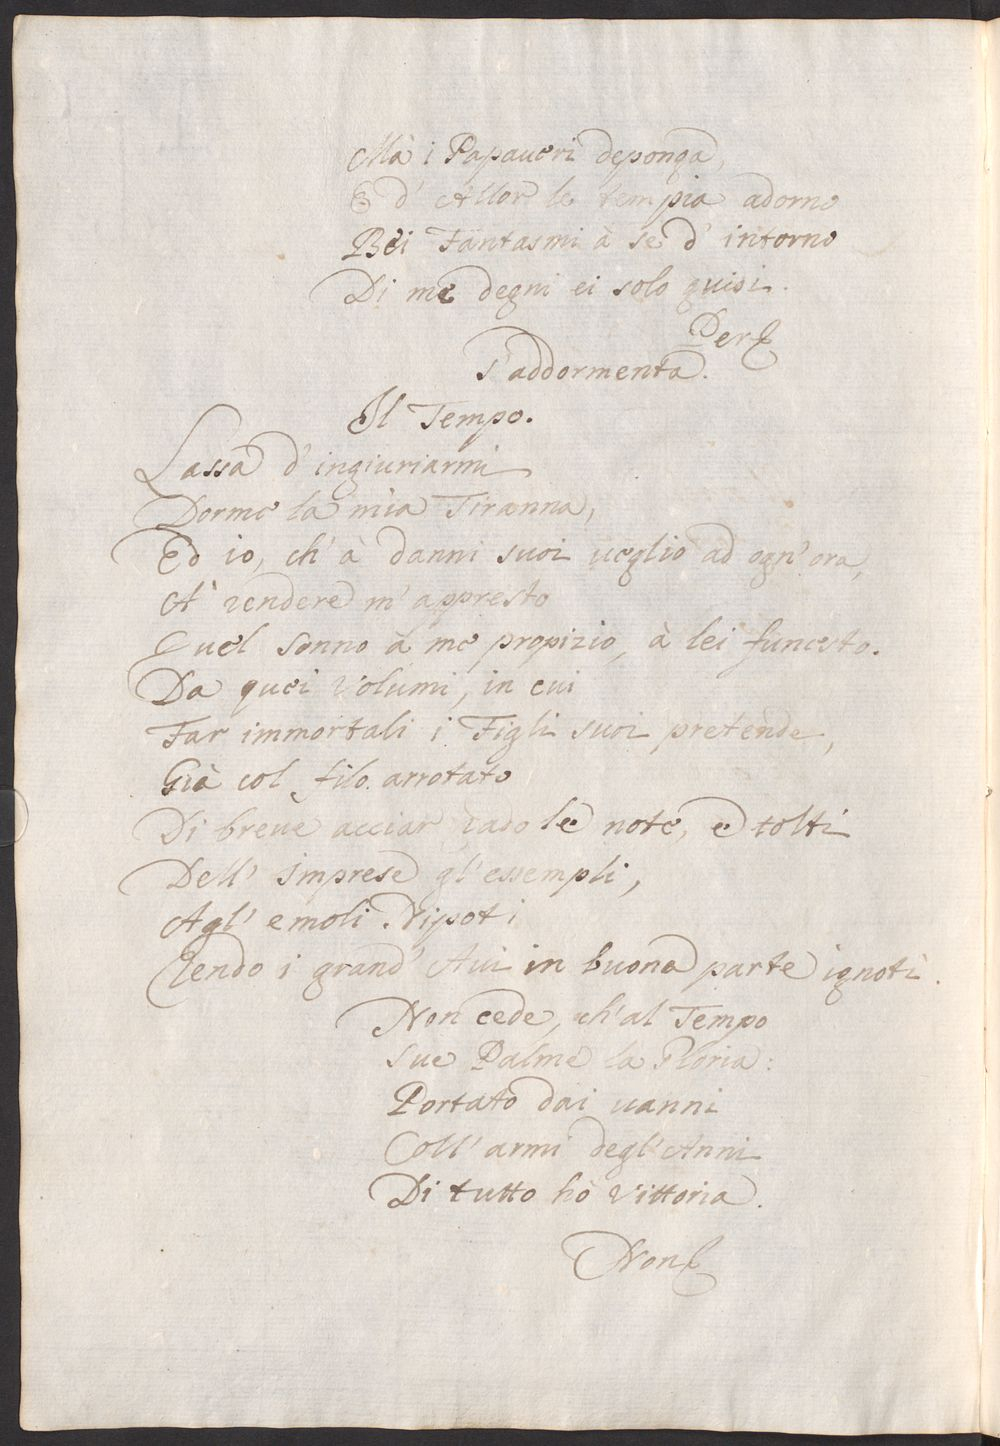 Mà i Papaueri deponga,
E d' Allor le tempia adorno
Bei Fantasmi à se d' intorno
Di me degni ei solo guidi.
Per
s'addormenta.
Il Tempo.
Lassa d' ingiuriarmi
Dorme la mia Tiranna,
Ed io, ch' à danni suoi ueglio ad ogn' ora,
A' rendere m' appresto
Quel sonno à me propizio, à lei funesto.
Da quei Volumi, in cui
Far immortali i Figli suoi pretende,
Già col filo arrotato
Di breue acciar rado le note, e tolti
Dell' Imprese gl' essempli,
Agl' emoli Nipoti
Rendo i grand' Aui in buona parte ignoti.
Non cede, ch' al Tempo
Sue Palme la Gloria:
Portato dai uanni
Coll' armi degl' Anni
Di tutto hò Vittoria.
Non